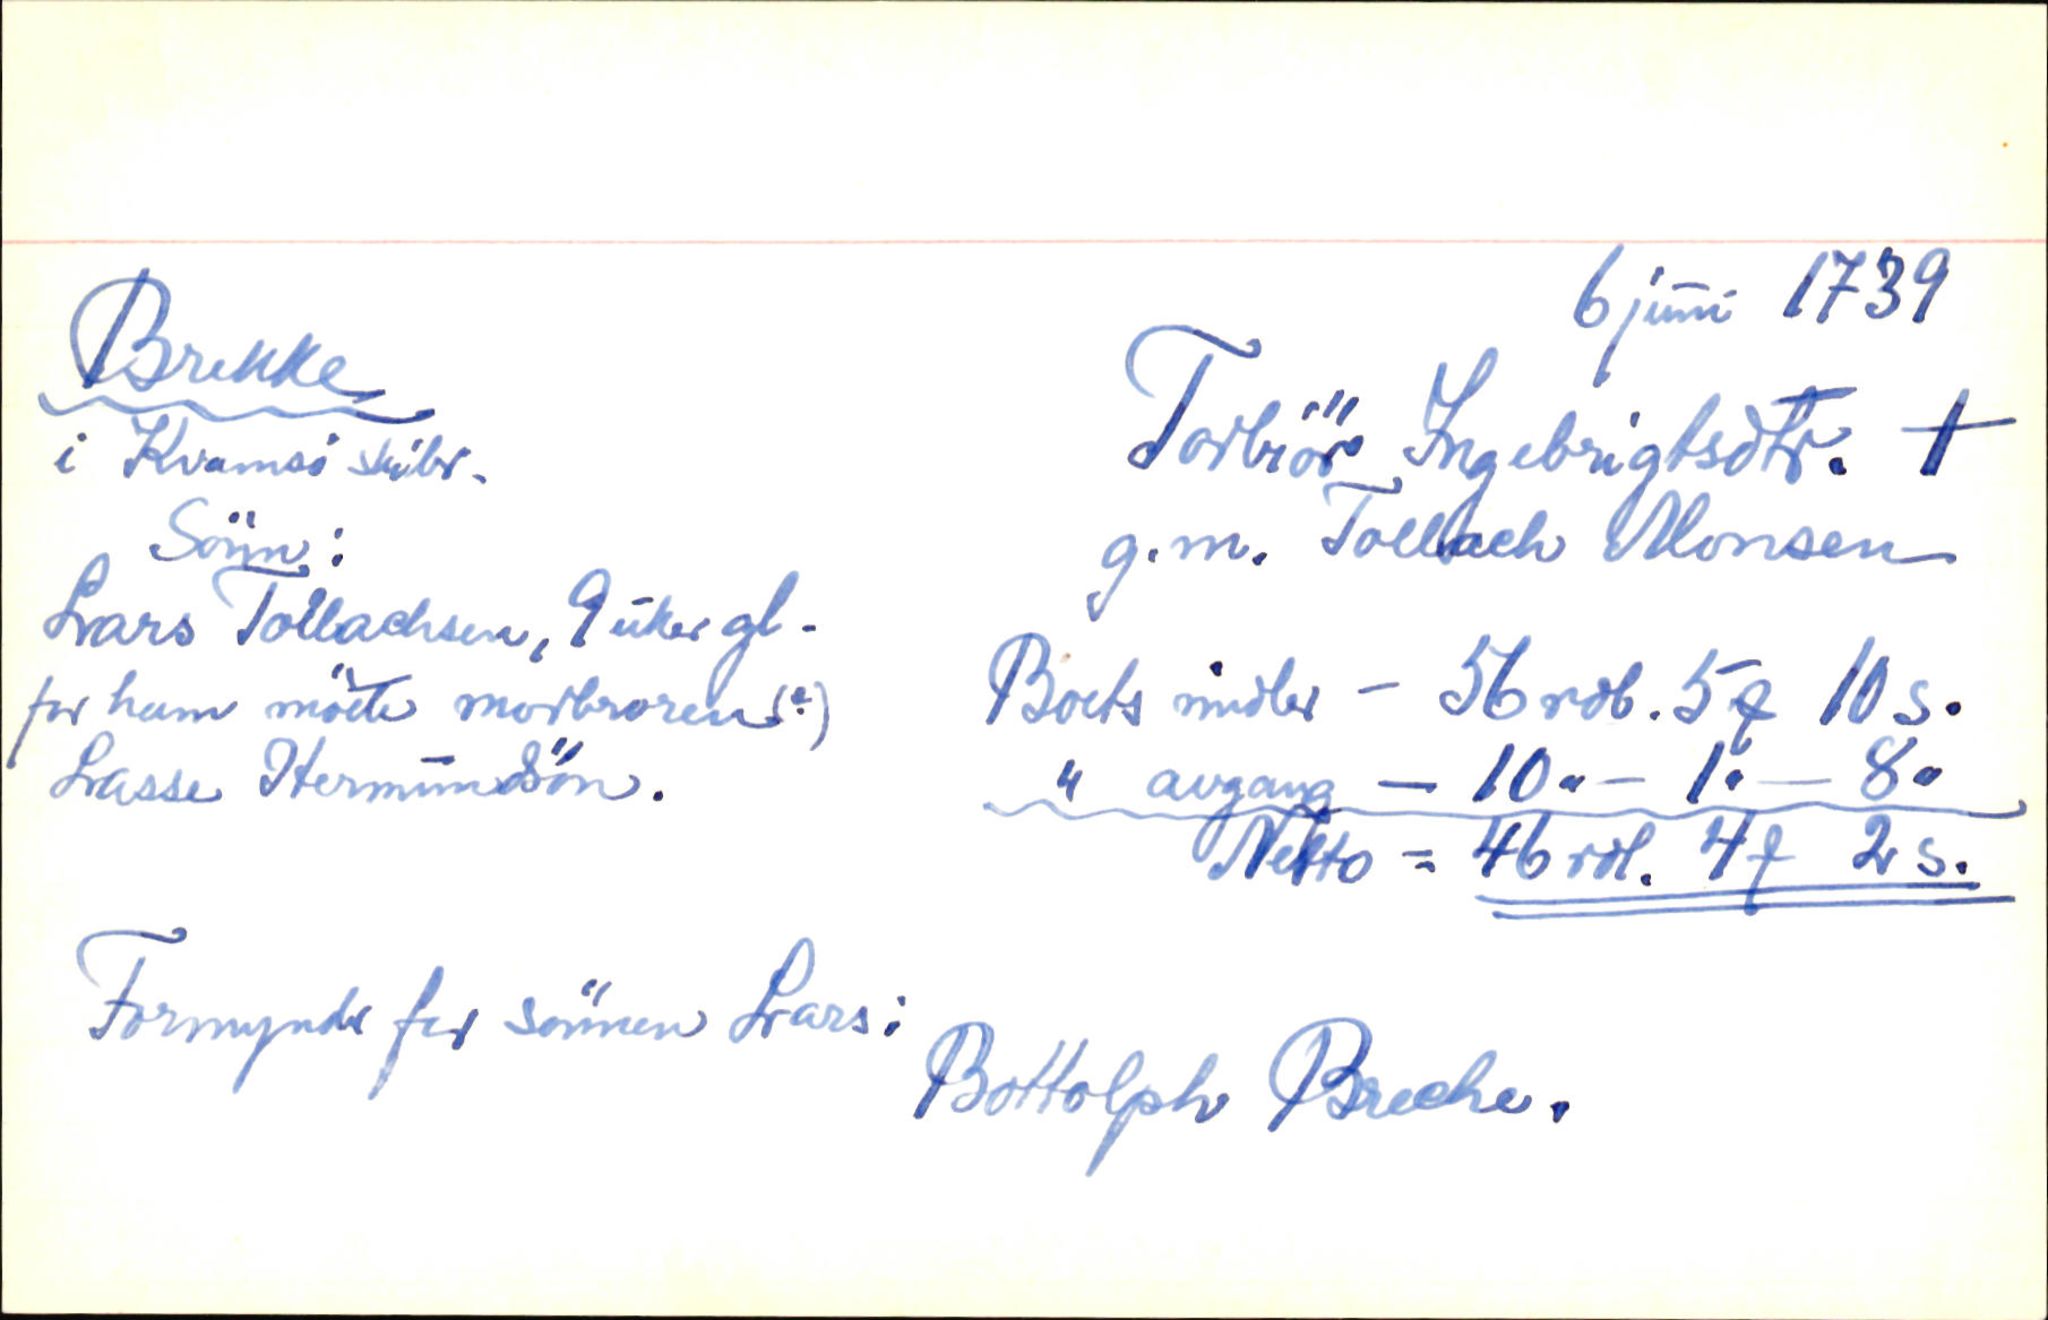 6 juni 1739
Brekke
i Kvamsö skibr.
Torbiör Ingebrigtsdtr. †
g.m. Tollach Monsen
Sönn:
Lars Tollachsen, 9 uker gl.
for ham mötte morbroren (?)
Lasse Hermundsön.
Boets midler - 56 rdl. 5 ƒ 10 s.
" avgang - 10 " - 1 " - 8 "
Netto = 46 rdl. 4 ƒ 2 s.
Formynder for sönnen Lars:
Bottolph Breche.